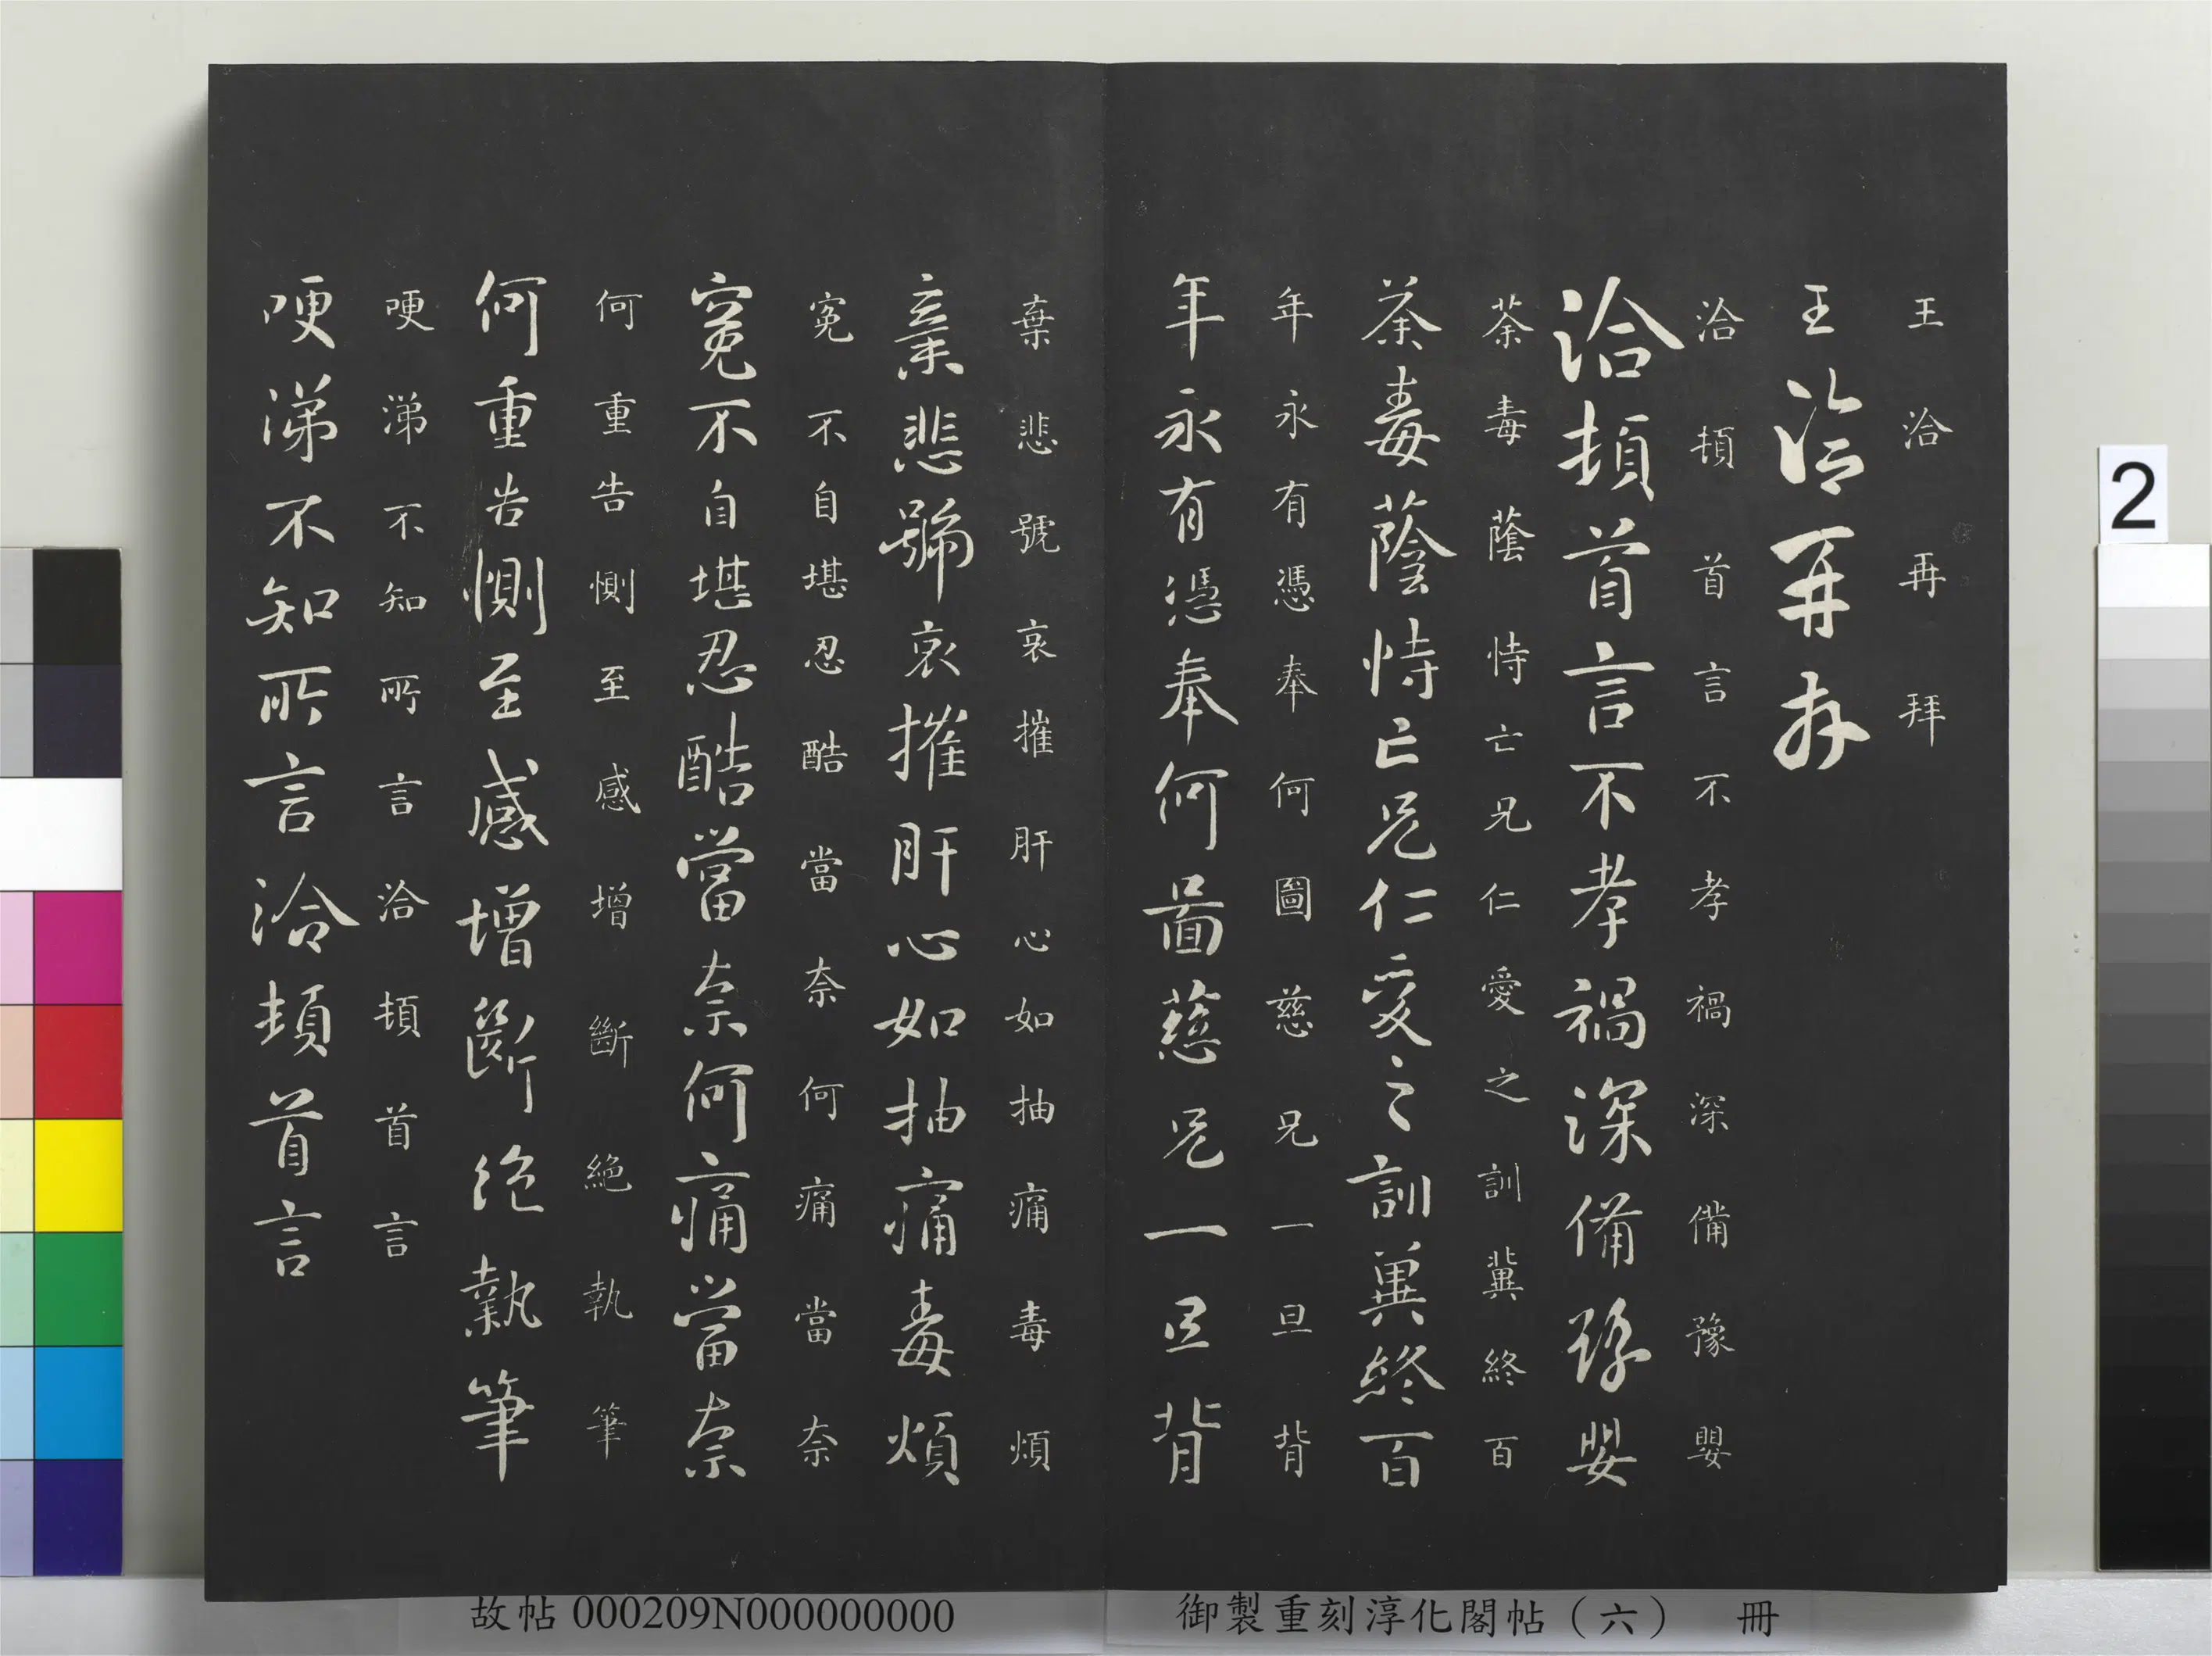 王洽再拜
王洽再拜
洽頓首言不孝禍深備豫嬰
洽頓首言不孝禍深備豫嬰
荼毒蔭恃亡兄仁愛之訓冀終百
荼毒蔭恃亡兄仁愛之訓冀終百
年永有憑奉何圖慈兄一旦背
年永有憑奉何圖慈兄一旦背
棄悲號哀摧肝心如抽痛毒煩
棄悲號哀摧肝心如抽痛毒煩
冤不自堪忍酷當奈何痛當奈
冤不自堪忍酷當奈何痛當奈
何重告惻至感增斷絕執筆
何重告惻至感增斷絕執筆
哽涕不知所言洽頓首言
哽涕不知所言洽頓首言
故帖 000209N000000000
御製重刻淳化閣帖（六） 冊
2